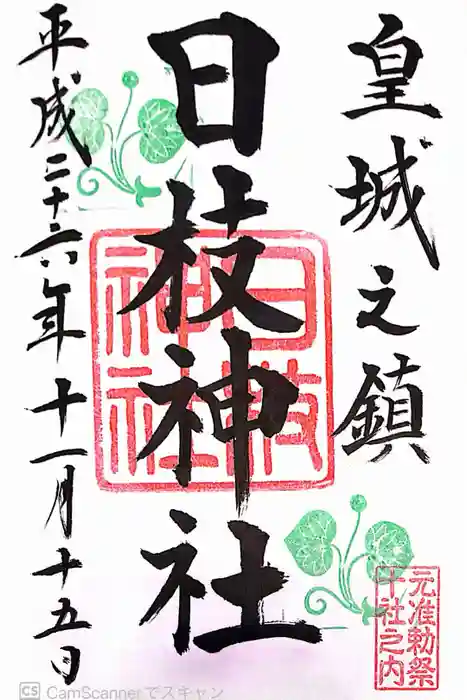 皇城之鎮
日枝神社
平成二十六年十一月十五日
日枝神社
元准勅祭
十社之内
CS CamScannerでスキャン